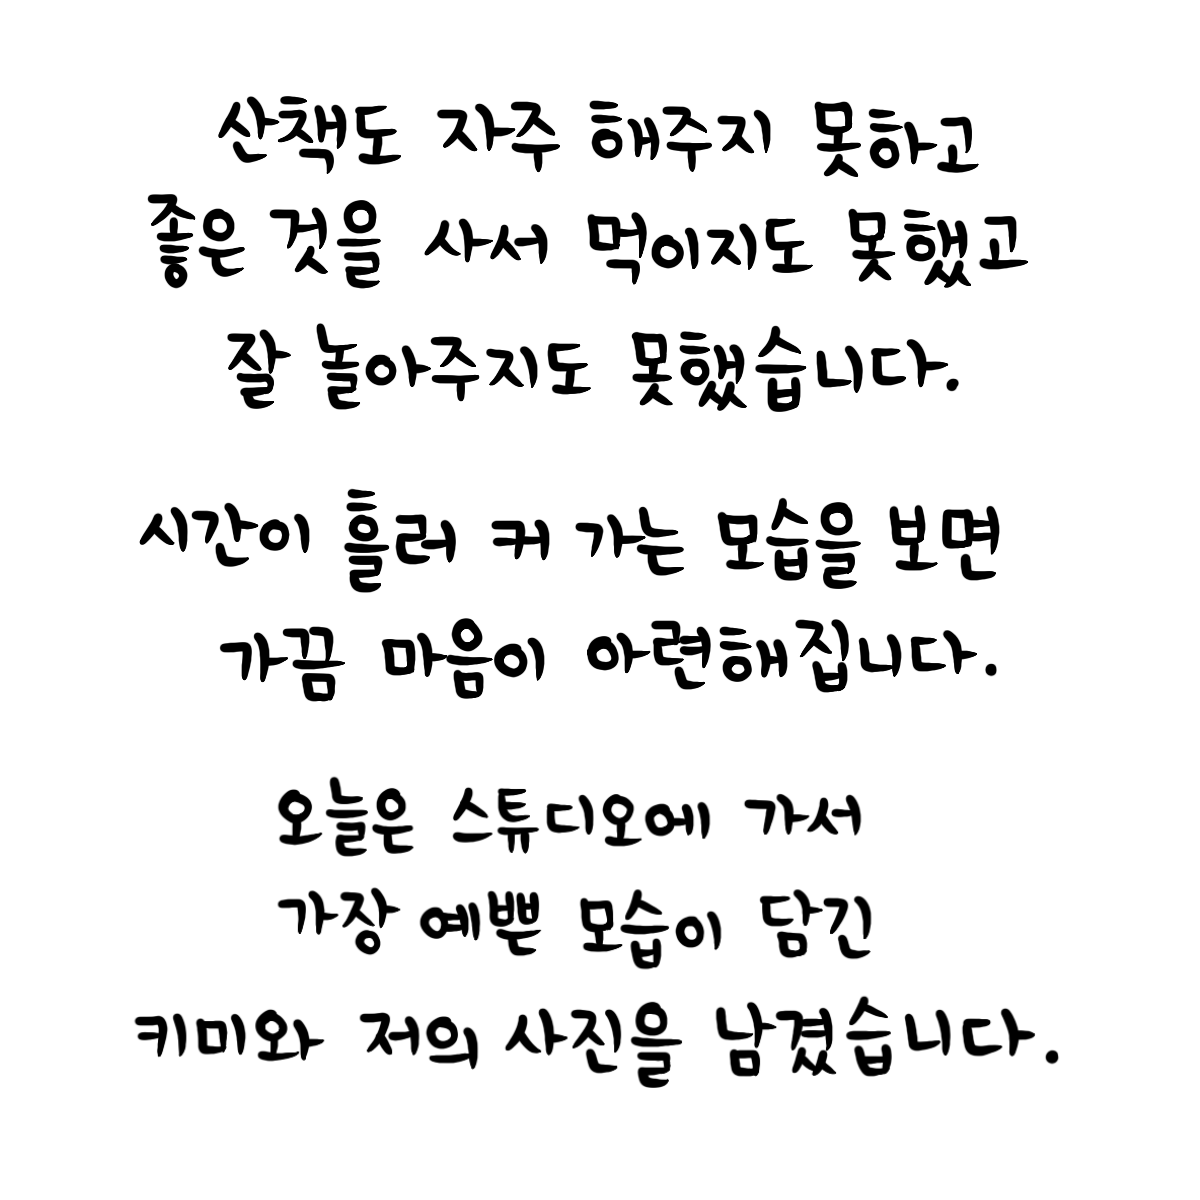 산책도 자주 해주지 못하고
좋은 것을 사서 먹이지도 못했고
잘 놀아주지도 못했습니다.
시간이 흘러 커 가는 모습을 보면
가끔 마음이 아련해집니다.
오늘은 스튜디오에 가서
가장 예쁜 모습이 담긴
키미와 저의 사진을 남겼습니다.